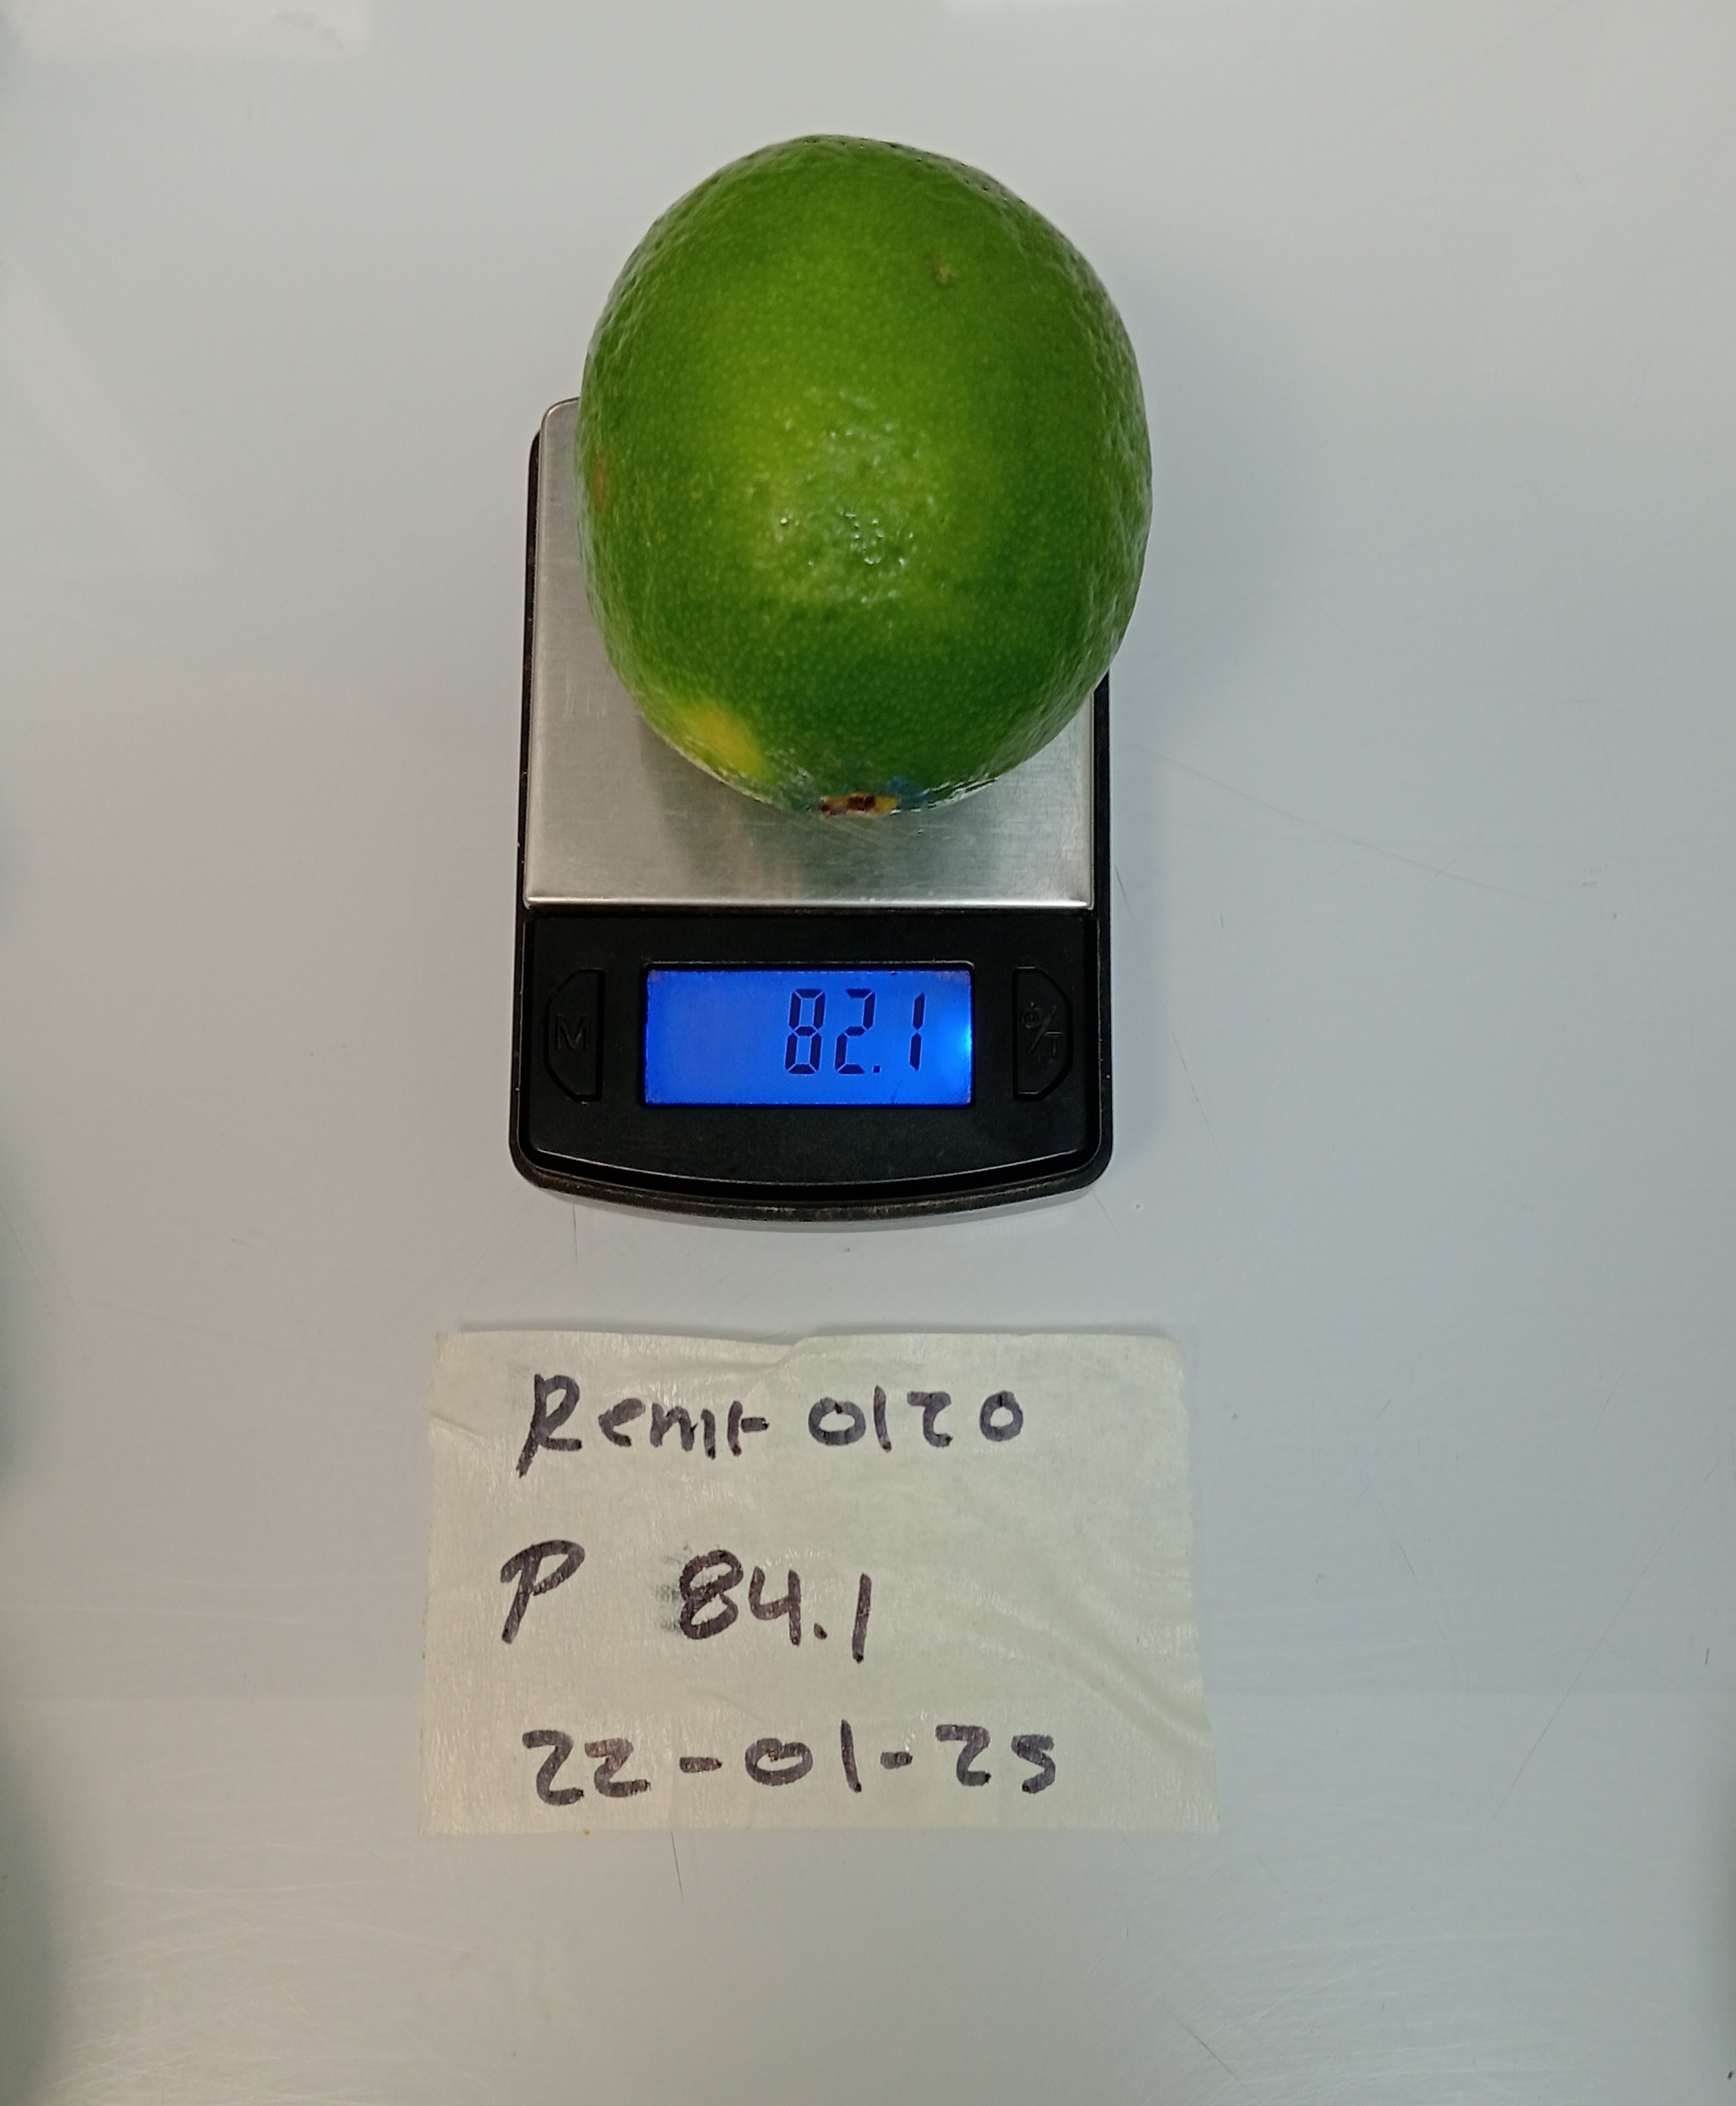 M
82.1
Remi- 0120
P 84.1
22-01-25